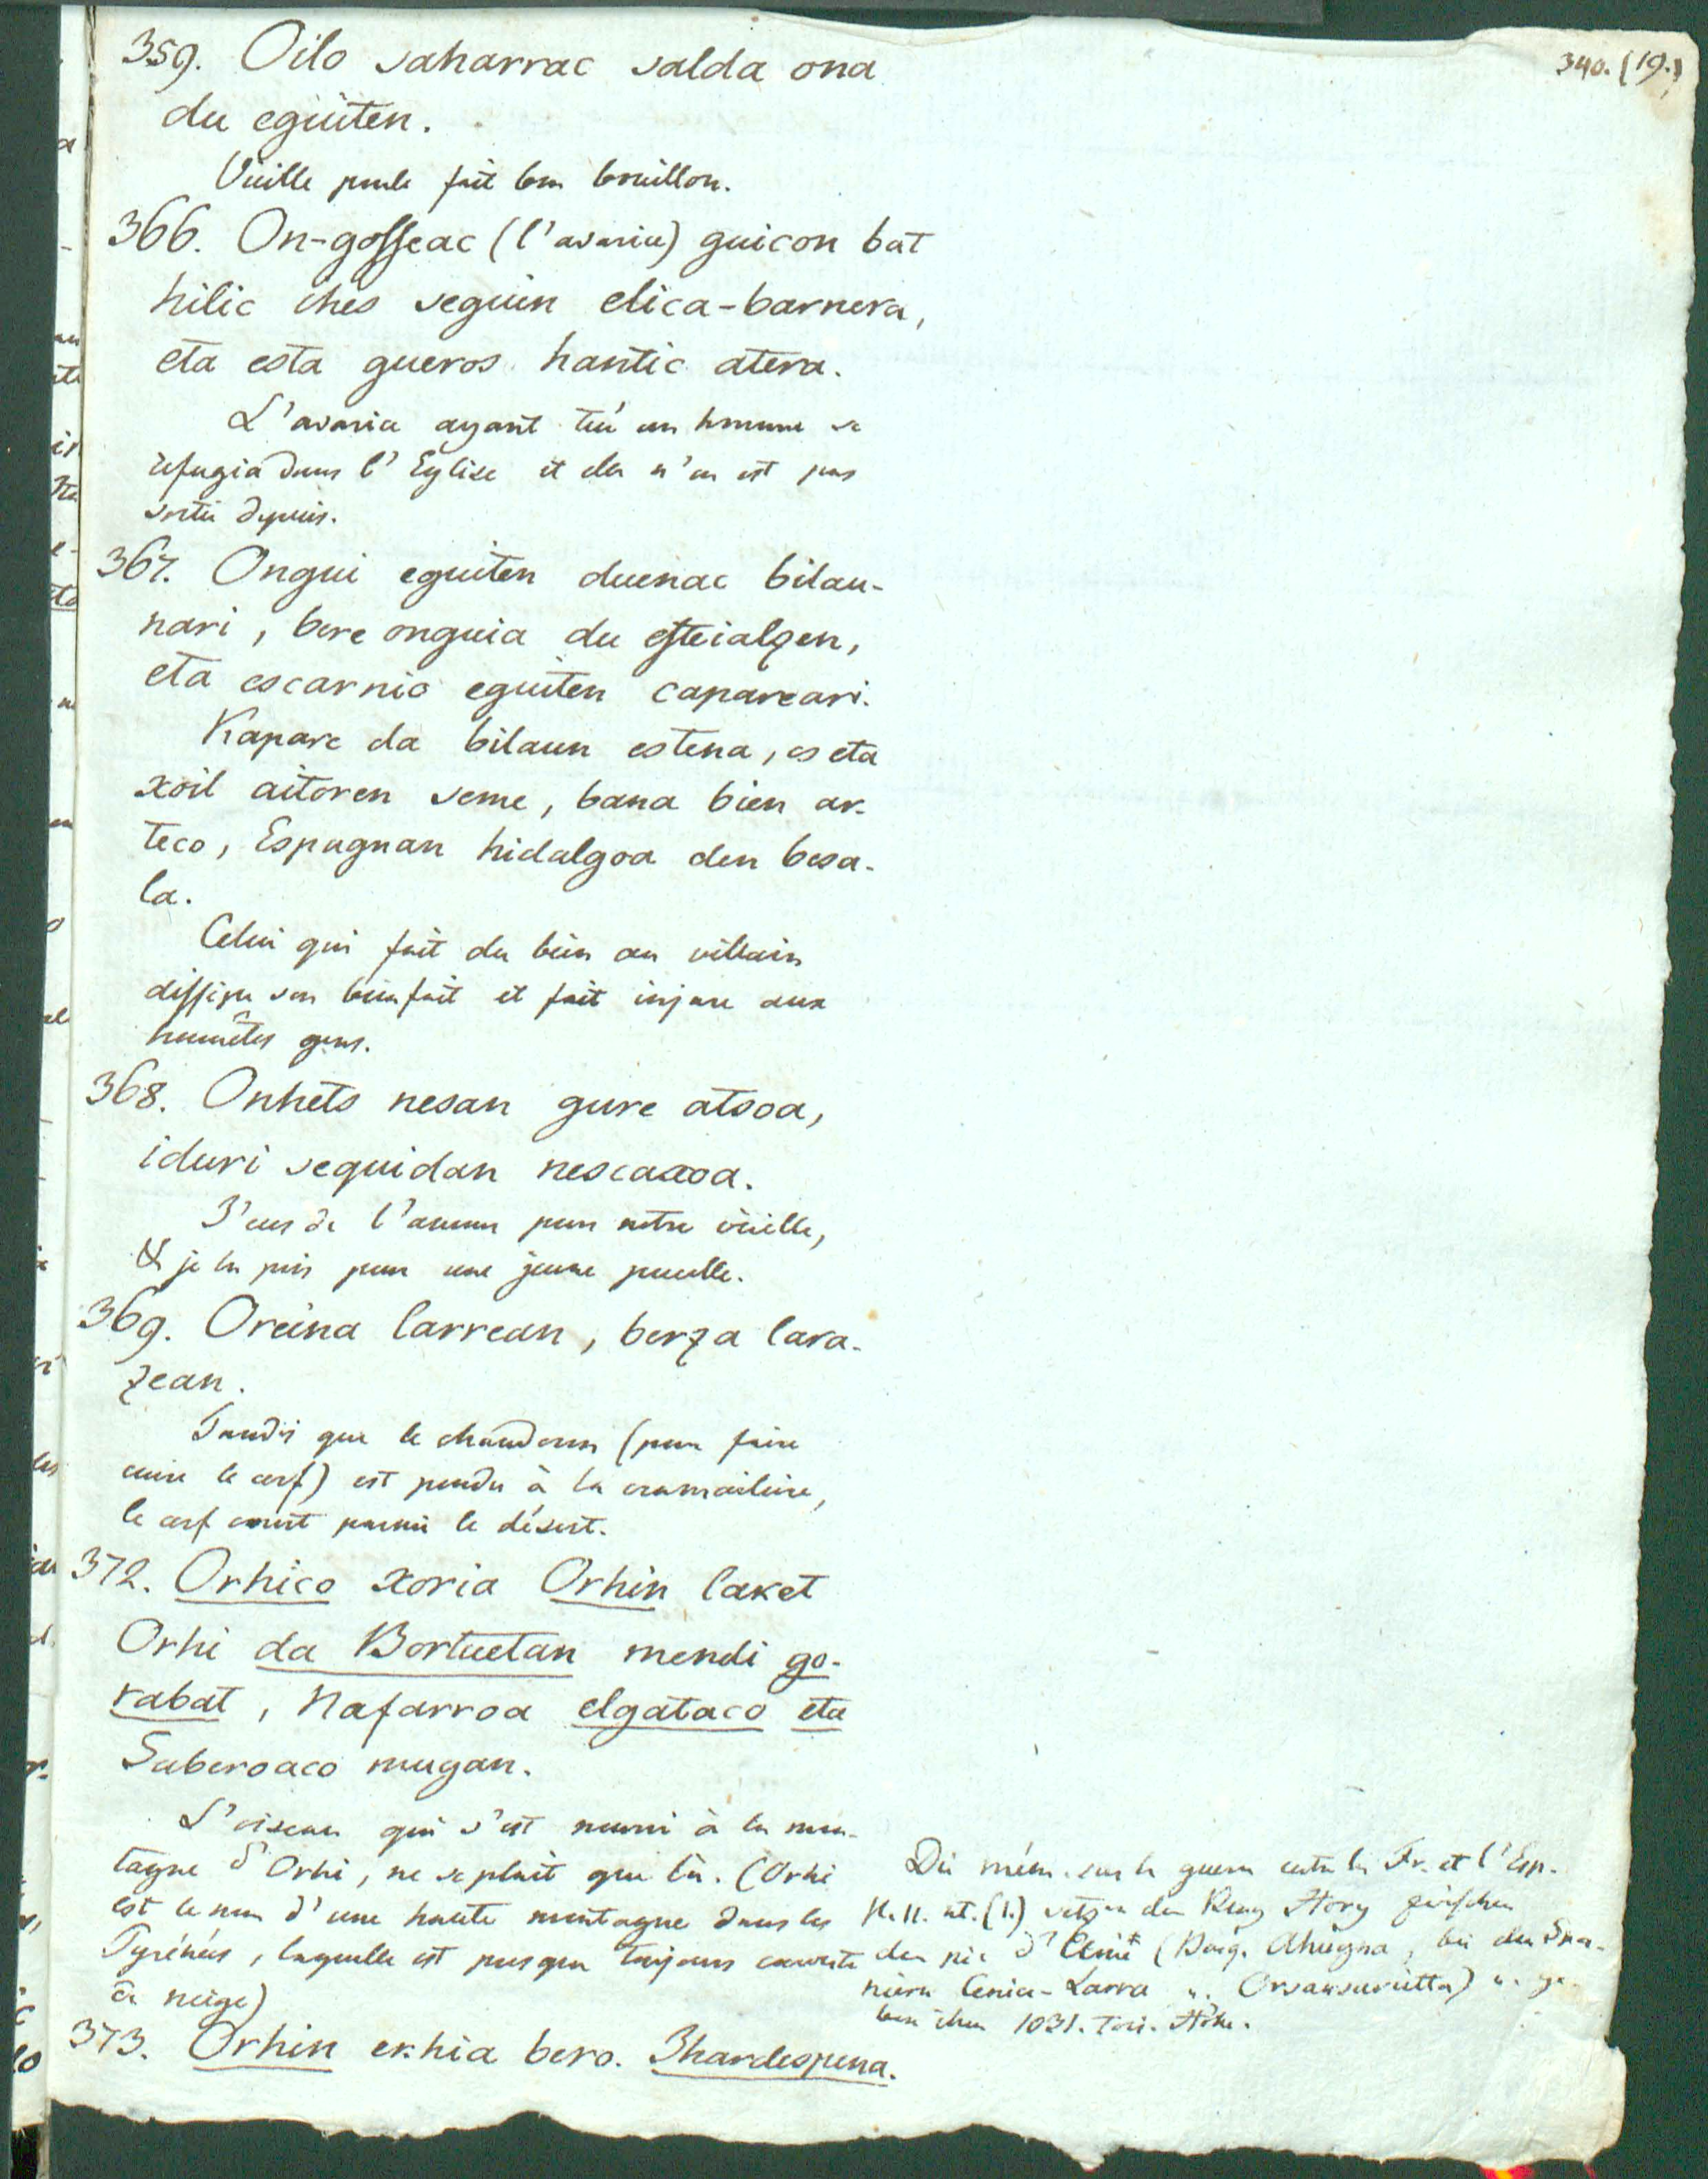 340. (19.)
359. Oilo saharrac salda ona
du eguiten.
Vieille poule fait bon bouillon.
366. On-gosseac (l'avarice) guicon bat
hilic ihes seguin elica-barnera,
eta esta gueros hantic atera.
L'avarice ayant tué un homme se
refugia dans l'Eglise et elle n'en est pas
sortie depuis.
367. Ongui eguiten duenac bilau-
nari, bere onguia du esteialçen,
eta escarnio eguiten capareari.
Kapare da bilaun estena, es eta
xoil aitoren seme, bana bien ar-
teco, Espagnan hidalgoa den besa-
la.
Celui qui fait du bien au villain
dissipe son bienfait et fait injure aux
honnêtes gens.
368. Onhets nesan gure atsoa,
iduri sequidan nescaxoa.
J'eus de l'amour pour notre vieille,
& je la pris pour une jeune pucelle.
369. Oreina larrean, berza lara-
zean.
Tandis que le chauderon (pour faire
cuire le cerf) est pendu à la cramailiere,
le cerf court parmi le désert.
372. Orhico xoria Orhin laket
Orhi da Bortuetan mendi go-
rabat, Nafarroa elgataco eta
Suberoaco mugan.
L'oiseau qui s'est nourri à la mon-
tagne d'Orhi, ne se plait que là. (Orhi
est le nom d'une haute montagne dans les
Pyrénées, laquelle est presque toujours couverte
de neige)
Die mém. sur la guerre entre la Fr. et l'Esp.
den Berg Hory zwischen
den pic d'Anie (Basq. Ahugna, bei den Spa-
niern
1031. Toi. Höhe.
373. Orhin ekhia bero. Ihardespena.